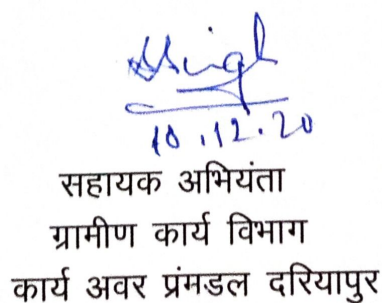 Singh
10.12.20
सहायक अभियंता
ग्रामीण कार्य विभाग
कार्य अवर प्रंमडल दरियापुर